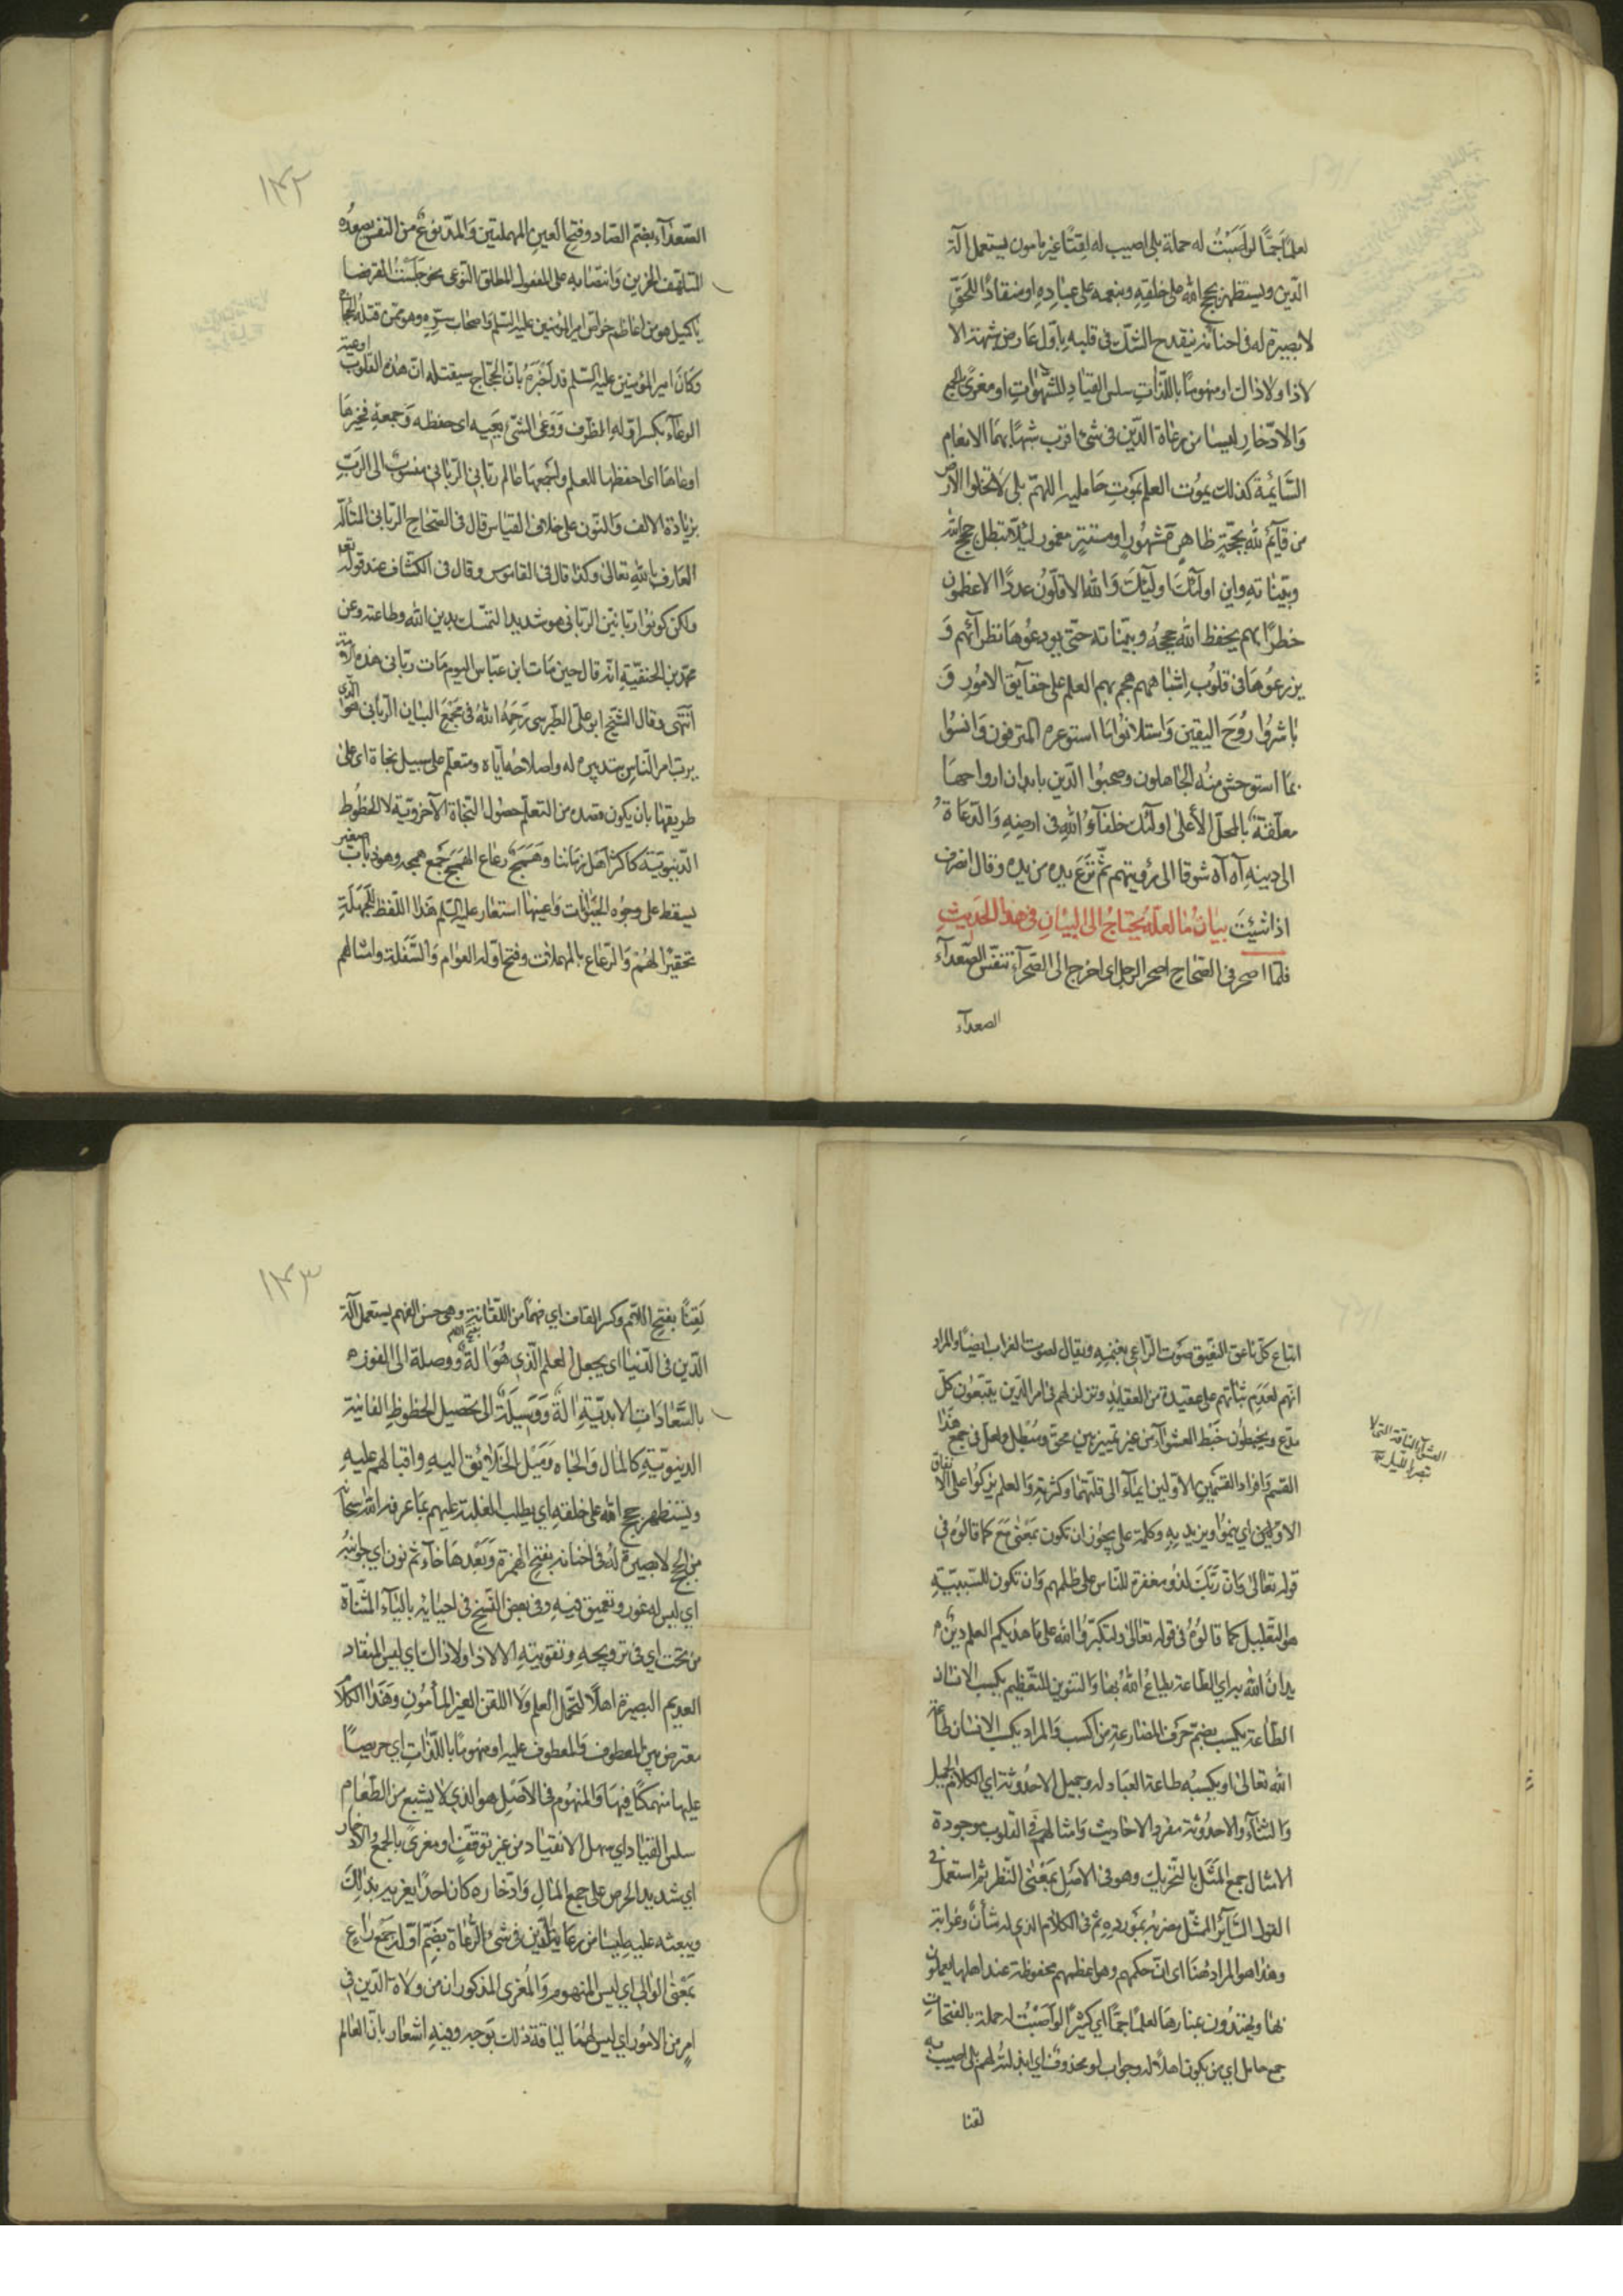 لعلما جما لو اصبت له حملة بلى اصيب له لقنا غير مامون يستعمل آلة
الدين ويستظهر بحجج الله على خلقه وبنعمه على عباده او منقادا للحق
لا بصيرة له فى احنائه ينقدح الشك فى قلبه باول عارض شبهة الا
لا ذا ولا ذاك او منهوما باللذات سلس القياد للشهوات او مغرى بالجمع
والادخار ليسا من رعاة الدين فى شئ اقرب شبها بهما الانعام
السائمة كذلك يموت العلم بموت حامليه اللهم بلى لا تخلوا الارض
من قائم لله بحجة ظاهر مشهور او مستتر مغمور لئلا تبطل حجج الله
وبيناته واين اولئك اولئك والله الاقلون عددا الاعظمون
خطرا بهم يحفظ الله حججه وبيناته حتى يودعوها نظرائهم و
يزرعوها فى قلوب اشباههم هجم بهم العلم على حقايق الامور و
باشروا روح اليقين واستلانوا ما استوعره المترفون وانسوا
بما استوحش منه الجاهلون وصحبوا الدين بابدان ارواحها
معلقة بالمحل الأعلى اولئك خلفآؤ الله فى ارضه والدعاة
الى دينه آه آه شوقا الى رؤيتهم ثم نزع يده من يده وقال انصرف
اذا شئت بيان ما لعله يحتاج الى البيان فى هذا الحديث
فلما اصحر فى الصحاح اصحر الرجل اى اخرج الى الصحرآء تنفس الصعدآء
الصعدآء
١٤٢
الصعدآء بضم الصاد وفتح العين المهملتين والمد نوع من التنفس يصعده
المتلهف الحزين وانتصابه على المفعول المطلق النوعى نحو جلست القرفصا
ياكميل هو من اعاظم خواص امير المؤمنين عليه السلم واصحاب سره وهو ممن قتله الحجاج
وكان امير المؤمنين عليه السلم قد اخبره بان الحجاج سيقتله ان هذه القلوب اوعية
الوعآء بكسر اوله الظرف ووعى الشئ يعيه اى حفظه وجمعه فخيرها
اوعاها اى احفظها للعلم واجمعها عالم ربانى الربانى منسوب الى الرب
بزيادة الالف والنون على خلاف القياس قال فى الصحاح الربانى المتأله
العارف بالله تعالى وكذا قال فى القاموس وقال فى الكشاف عند قوله تعالى
ولكن كونوا ربانيين الربانى هو شديد التمسك بدين الله وطاعته وعن
محمد بن الحنفية انه قال حين مات ابن عباس اليوم مات ربانى هذه الامة
انتهى وقال الشيخ ابو على الطبرسى رحمه الله فى مجمع البيان الربانى هو الذى
يرب امر الناس بتدبيره له واصلاحه اياه ومتعلم على سبيل نجاة اى على
طريقها بان يكون قصده من التعلم حصول النجاة الآخروية لا الحظوظ
الدنيوية كاكثر اهل زماننا وهمج رعاع الهمج جمع همجه وهو ذباب صغير
يسقط على وجوه الحيوانات واعينها استعار عليه السلم هذا اللفظ للجهلة
تحقيرا لهم والرعاع بالمهملات وفتح اوله العوام والسفلة وامثالهم
اتباع كل ناعق النعيق صوت الراعى بغنمه ويقال لصوت الغراب ايضا والمراد
انهم لعدم ثباتهم على عقيدة من العقايد وتزلزلهم فى امر الدين يتبعون كل
مدع ويخبطون خبط العشوآء من غير تمييز بين محق ومبطل ولعل فى جمع هذا
القسم وافراد القسمين الاولين ايمآء الى قلتهما وكثرته والعلم يزكوا على الانفاق
الاولين اي ينموا ويزيد به وكلمة على يجوز ان تكون بمعنى مع كما قالوه فى
قوله تعالى وان ربك لذو مغفرة للناس على ظلمهم وان تكون للسببية
هو التعليل كما قالوه فى قوله تعالى ولتكبروا الله على ما هديكم العلم دين
يدان الله به اي الطاعة يطاع الله بها والتنوين للتعظيم يكسب الانسان
الطاعة يكسب بضم حرف المضارعة من اكسب والمراد يكسب الانسان طاعة
الله تعالى او يكسبه طاعة العباد له وجميل الاحدوثة اي الكلام الجميل
والثنآء والاحدوثة مفرد الاحاديث وامثالهم فى القلوب موجودة
الامثال جمع المثل بالتحريك وهو فى الاصل بمعنى النظير ثم استعمل فى
القول السآئر الممثل مضربه بمورده ثم فى الكلام الذى له شأن وغرابة
وهذا هو المراد هنا اى ان حكمهم ومواعظهم محفوظة عند اهلها يعملون
بها ويهتدون بمنارها لعلما جما اي كثيرا لو اصبت له حملة بالفتحات
جمع حامل اي من يكون اهلا له وجواب لو محذوف اي لبذلته لهم بلى اصيب به
العشوآء الناقة التى لا
تبصر بالليل
لقنا
١٤٣
لقنا بفتح اللام وكسر القاف اي فهما من اللقانة بفتح اللام وهى حسن الفهم يستعمل آلة
الدين فى الدنيا اى يجعل العلم الذى هو آلة ووصلة الى الفوز
بالسعادات الابدية آلة ووسيلة الى تحصيل الحظوظ الفانية
الدنيوية كالمال والجاه وميل الخلايق اليه واقبالهم عليه
ويستظهر بحجج الله على خلقه اي يطلب الغلبة عليهم بما عرفه الله سبحانه
من الحجج لا بصيرة له فى احنائه بفتح الهمزة وبعدها حآء ثم نون اي جوانبه
اي ليس له غور وتعميق فيه وفى بعض النسخ فى احيائه باليآء المثناة
من تحت اي فى ترويجه وتقويته الا لا ذا ولا ذاك اي ليس المنقاد
العديم البصيرة اهلا لتحمل العلم ولا اللقن الغير المأمون وهذا الكلام
معترض بين المعطوف والمعطوف عليه او منهوما باللذات اي حريصا
عليها منهمكا فيها والمنهوم فى الاصل هو الذي لا يشبع من الطعام
سلس القياد اي سهل الانقياد من غير توقف او مغرى بالجمع والادخار
اي شديد الحرص على جمع المال وادخاره كان احدا يغريه بذلك
ويبعثه عليه ليسا من رعاة الدين فى شئ الرعاة بضم اوله جمع راع
بمعنى الوالى اي ليس المنهوم والمغرى المذكوران من ولاة الدين فى
امر من الامور اي ليس لهما لياقة ذلك بوجه وفيه اشعار بان العالم